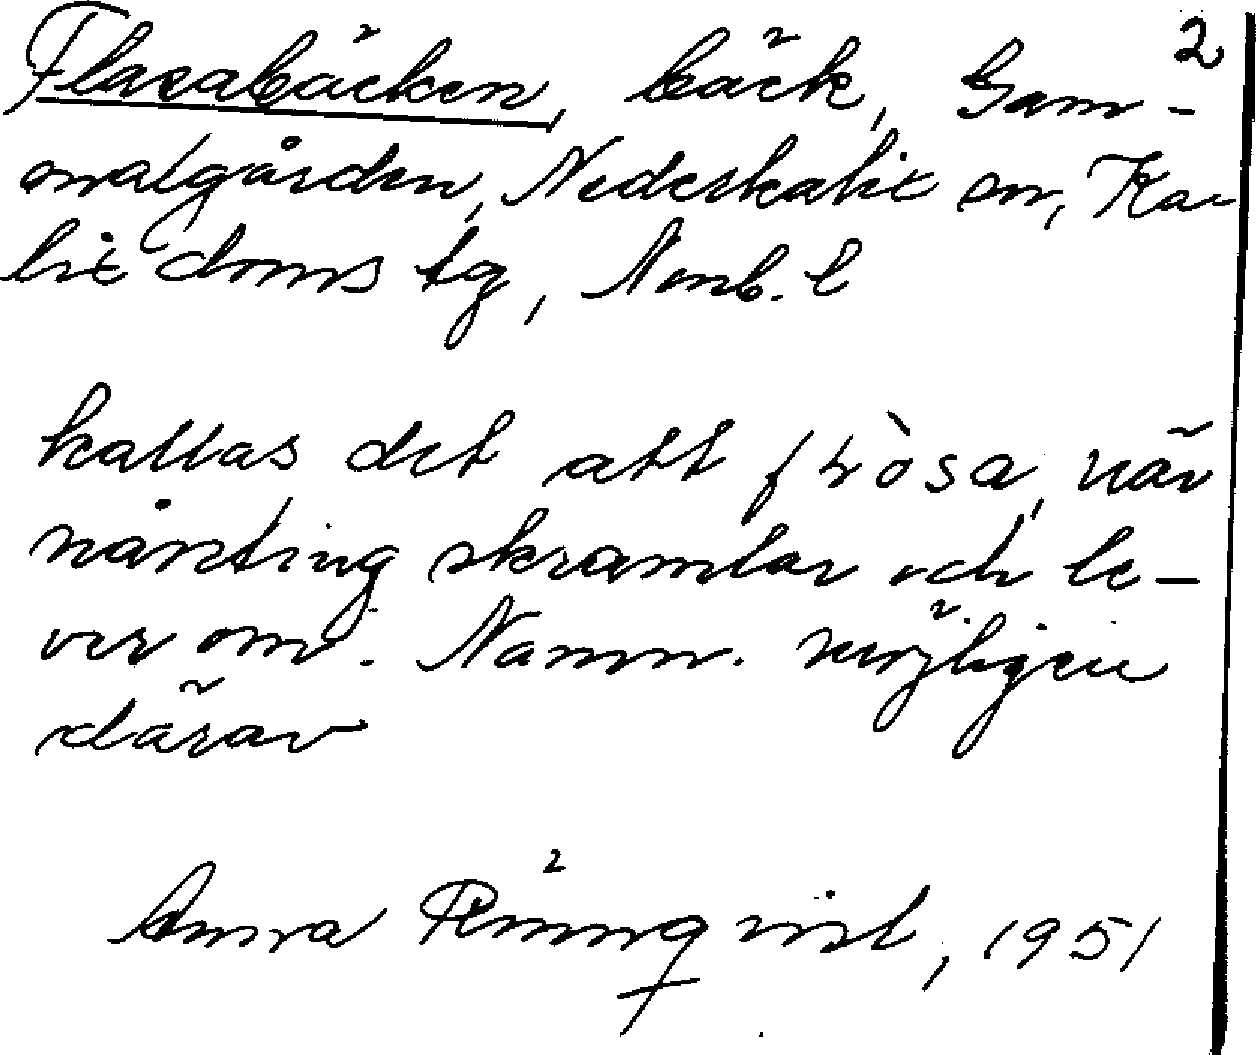 2
Flasabäcken, bäck, Gam-
malgården, Nederkalix sn, Ka-
lix doms tg, Norrb. l
kallas det att
när
nånting skramlar och le-
ver om. Namn. möjligen
därav
Anna Rönnqvist, 1951